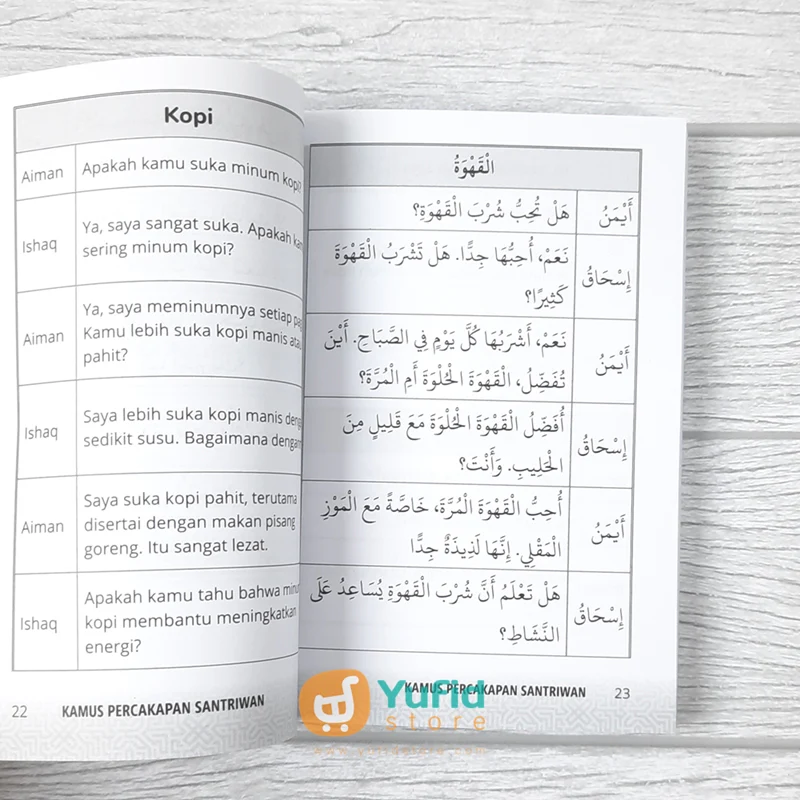 Kopi
Aiman
Apakah kamu suka minum kopi?
Ishaq
Ya, saya sangat suka. Apakah kam
sering minum kopi?
Aiman
Ya, saya meminumnya setiap pag
Kamu lebih suka kopi manis atau
pahit?
Ishaq
Saya lebih suka kopi manis denga
sedikit susu. Bagaimana dengan
Aiman
Saya suka kopi pahit, terutama
disertai dengan makan pisang
goreng. Itu sangat lezat.
Ishaq
Apakah kamu tahu bahwa minum
kopi membantu meningkatkan
energi?
22 KAMUS PERCAKAPAN SANTRIWAN
الْقَهْوَةُ
أَيْمَنُ
هَلْ تُحِبُّ شُرْبَ الْقَهْوَةِ؟
إِسْحَاقُ
نَعَمْ، أُحِبُّهَا جِدًّا. هَلْ تَشْرَبُ الْقَهْوَةَ
كَثِيرًا؟
أَيْمَنُ
نَعَمْ، أَشْرَبُهَا كُلَّ يَوْمٍ فِي الصَّبَاحِ. أَيْنَ
تُفَضِّلُ، الْقَهْوَةَ الْحُلْوَةَ أَمِ الْمُرَّةَ؟
إِسْحَاقُ
أُفَضِّلُ الْقَهْوَةَ الْحُلْوَةَ مَعَ قَلِيلٍ مِنَ
الْحَلِيبِ. وَأَنْتَ؟
أَيْمَنُ
أُحِبُّ الْقَهْوَةَ الْمُرَّةَ، خَاصَّةً مَعَ الْمَوْزِ
الْمَقْلِي. إِنَّهَا لَذِيذَةٌ جِدًّا
إِسْحَاقُ
هَلْ تَعْلَمُ أَنَّ شُرْبَ الْقَهْوَةِ يُسَاعِدُ عَلَى
النَّشَاطِ؟
KAMUS PERCAKAPAN SANTRIWAN 23
Yufid
store